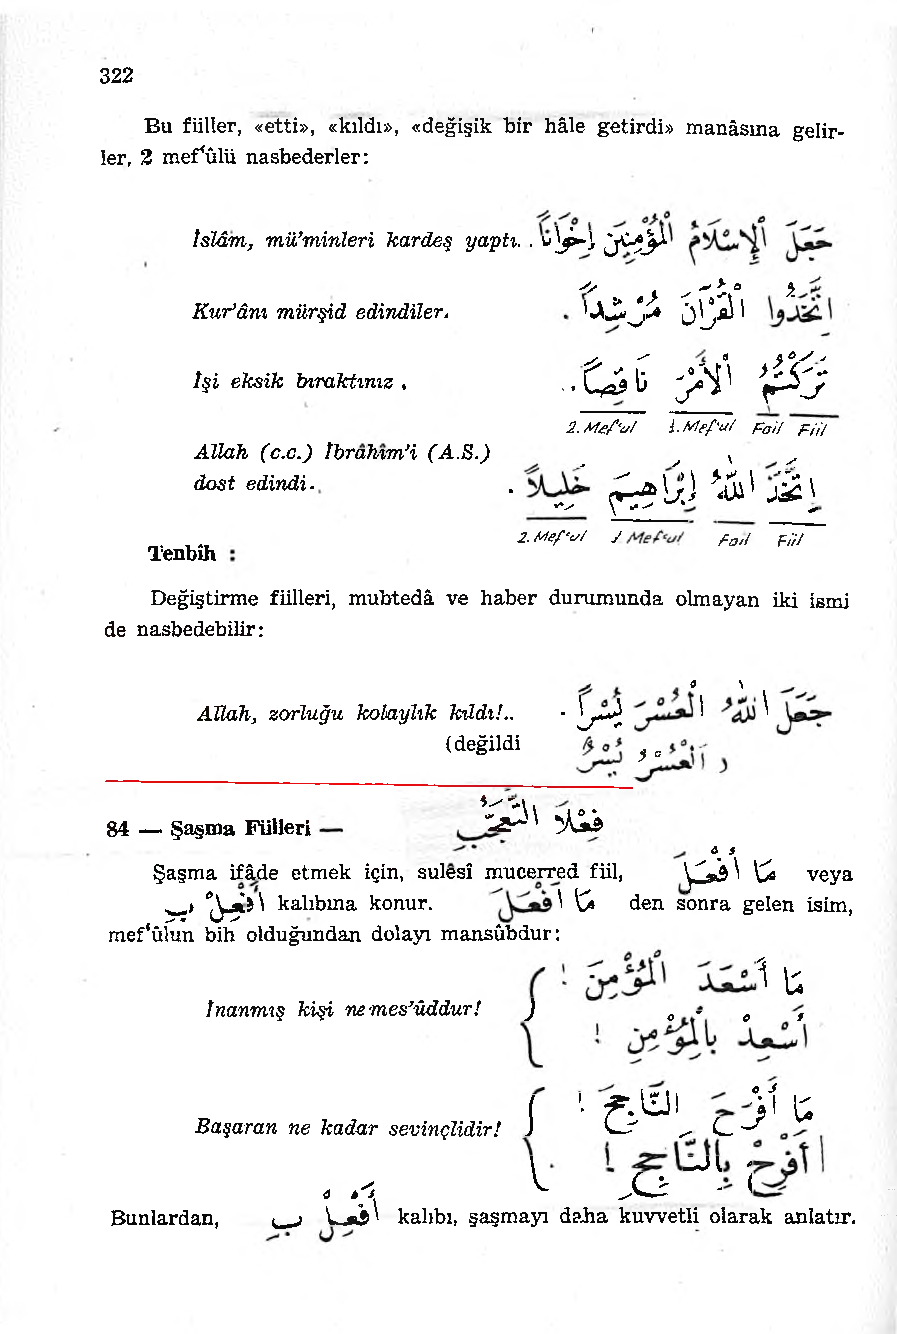 322
Bu fiiller, «etti», «kıldı», «değişik bir hâle getirdi» manâsına gelir-
ler, 2 mef‘ûlü nasbederler:
İslâm, mü’minleri kardeş yaptı. . جَعَلَ اْلإِسْلَامُ الْمُؤْمِنِينَ إِخْوَانًا
Kur’ânı mürşid edindiler. اِتَّخَذُوا الْقُرْآنَ مُرْشِدًا .
İşi eksik bıraktınız . تَرَكْتُمُ الْأَمْرَ نَاقِصًا . .
2. Mef‘ul 1. Mef‘ul Fail Fiil
Allah (c.c.) İbrâhîm’i (A.S.)
dost edindi. اِتَّخَذَ اللهُ إِبْرَاهِيمَ خَلِيلًا .
2. Mef‘ul 1 Mef‘ul Fail Fiil
Tenbîh :
Değiştirme fiilleri, mubtedâ ve haber durumunda olmayan iki ismi
de nasbedebilir:
Allah, zorluğu kolaylık kıldı!.. جَعَلَ اللهُ الْعُسْرَ يُسْرًا .
(değildi اَلْعُسْرُ يُسْرٌ )
84 — Şaşma Fiilleri — فِعْلَا التَّعَجُّبِ
Şaşma ifâde etmek için, sulêsî mucerred fiil, مَا أَفْعَلَ veya
أَفْعِلْ بِـ kalıbına konur. مَا أَفْعَلَ den sonra gelen isim,
mef‘ûlun bih olduğundan dolayı mansûbdur:
مَا أَسْعَدَ الْمُؤْمِنَ !
İnanmış kişi ne mes’ûddur!
أَسْعِدْ بِالْمُؤْمِنِ !
مَا أَفْرَحَ النَّاجِحَ !
Başaran ne kadar sevinçlidir!
أَفْرِحْ بِالنَّاجِحِ !
Bunlardan, أَفْعِلْ بِـ kalıbı, şaşmayı daha kuvvetli olarak anlatır.